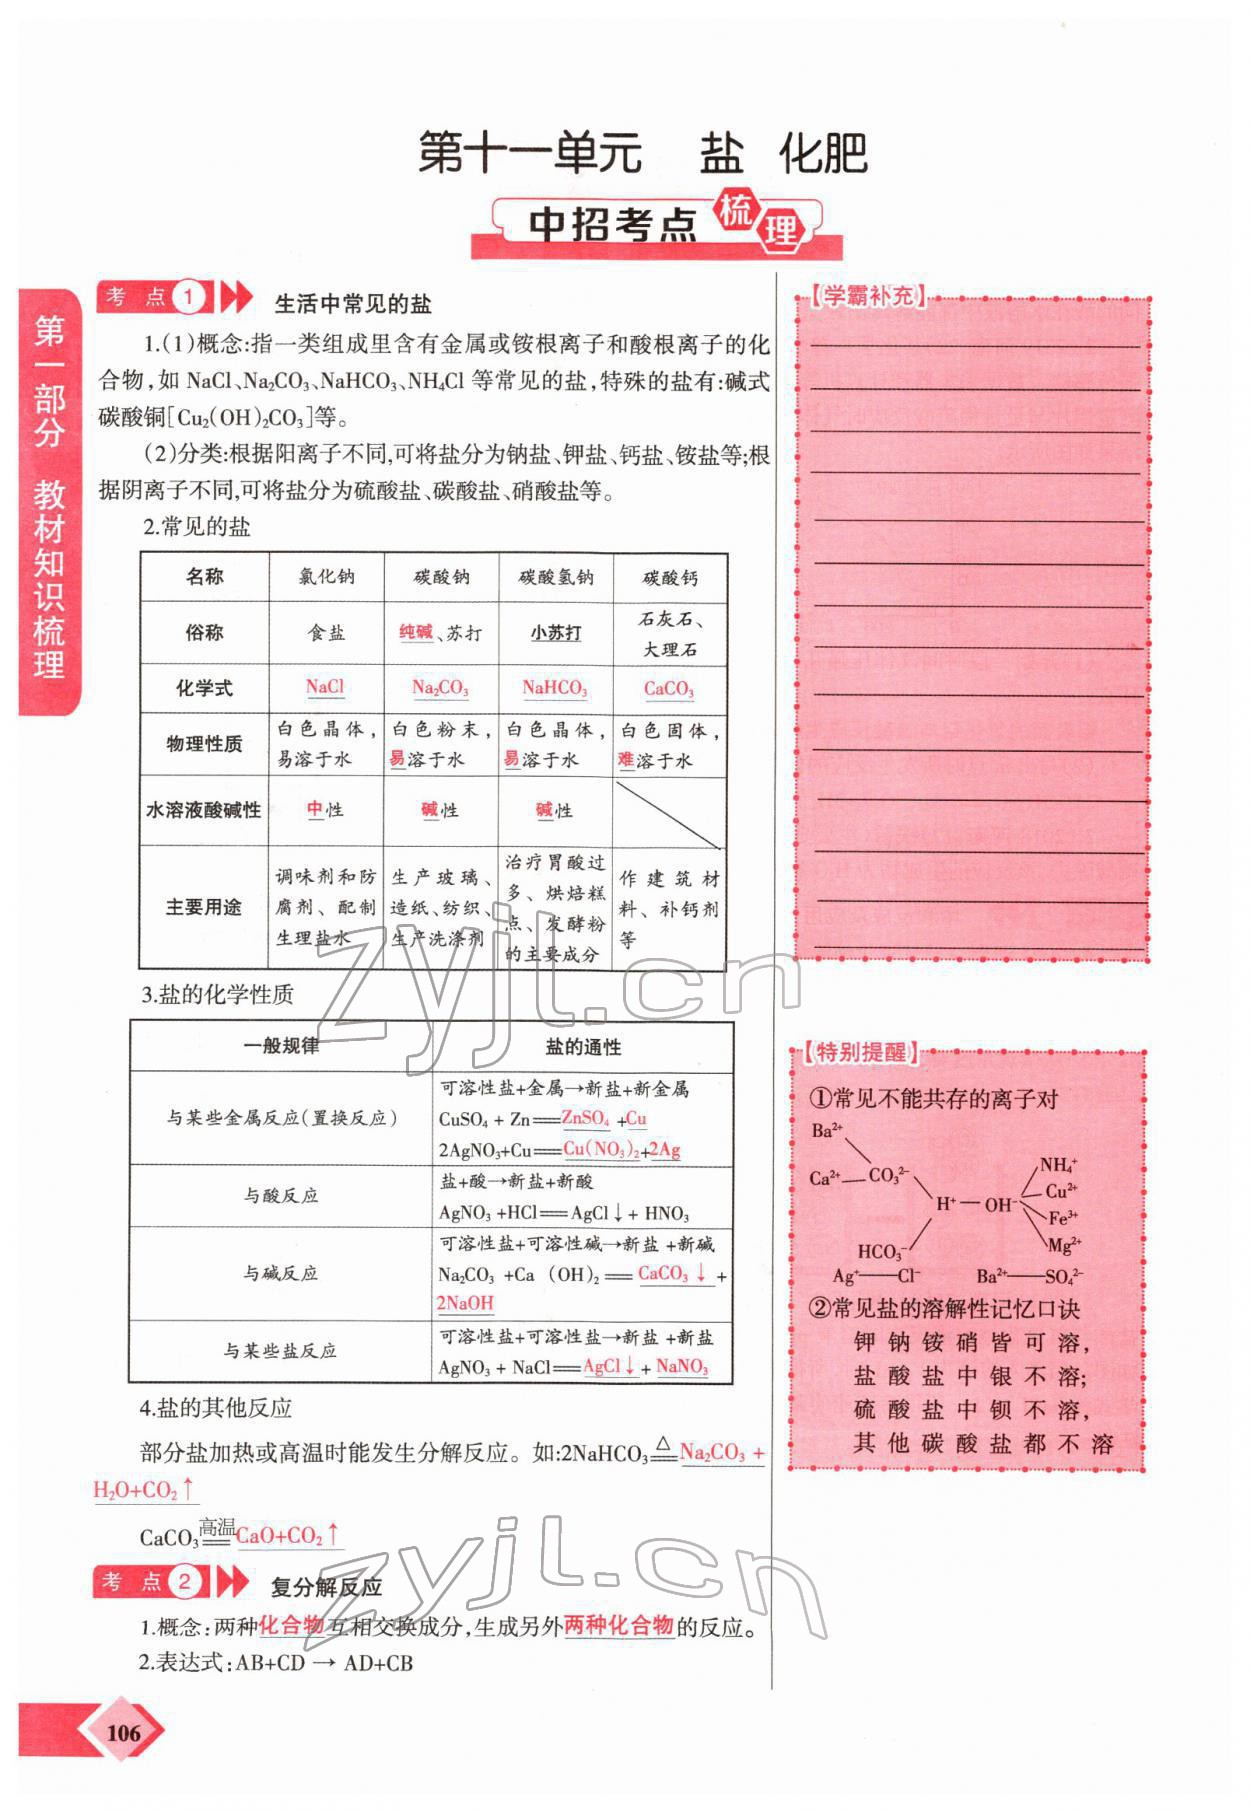 第十一单元 盐 化肥
中招考点 梳理
第一部分 教材知识梳理
考点1 生活中常见的盐
1.(1)概念:指一类组成里含有金属或铵根离子和酸根离子的化
合物,如NaCl、Na₂CO₃、NaHCO₃、NH₄Cl等常见的盐,特殊的盐有:碱式
碳酸铜[Cu₂(OH)₂CO₃]等。
(2)分类:根据阳离子不同,可将盐分为钠盐、钾盐、钙盐、铵盐等;根
据阴离子不同,可将盐分为硫酸盐、碳酸盐、硝酸盐等。
2.常见的盐
名称 氯化钠 碳酸钠 碳酸氢钠 碳酸钙
俗称 食盐 纯碱、苏打 小苏打 石灰石、
大理石
化学式 NaCl Na₂CO₃ NaHCO₃ CaCO₃
物理性质 白色晶体,
易溶于水 白色粉末,
易溶于水 白色晶体,
易溶于水 白色固体,
难溶于水
水溶液酸碱性 中性 碱性 碱性
主要用途 调味剂和防
腐剂、配制
生理盐水 生产玻璃、
造纸、纺织、
生产洗涤剂 治疗胃酸过
多、烘焙糕
点、发酵粉
的主要成分 作建筑材
料、补钙剂
等
3.盐的化学性质
一般规律 盐的通性
与某些金属反应(置换反应) 可溶性盐+金属→新盐+新金属
CuSO₄ + Zn══ZnSO₄ +Cu
2AgNO₃+Cu══Cu(NO₃)₂+2Ag
与酸反应 盐+酸→新盐+新酸
AgNO₃ +HCl══AgCl↓+ HNO₃
与碱反应 可溶性盐+可溶性碱→新盐 +新碱
Na₂CO₃ +Ca (OH)₂ ══ CaCO₃↓ +
2NaOH
与某些盐反应 可溶性盐+可溶性盐→新盐 +新盐
AgNO₃ + NaCl══AgCl↓ + NaNO₃
4.盐的其他反应
部分盐加热或高温时能发生分解反应。如:2NaHCO₃ △══ Na₂CO₃ +
H₂O+CO₂↑
CaCO₃ 高温══ CaO+CO₂↑
考点2 复分解反应
1.概念:两种化合物互相交换成分,生成另外两种化合物的反应。
2.表达式:AB+CD → AD+CB
【学霸补充】
【特别提醒】
①常见不能共存的离子对
Ba²⁺
Ca²⁺ CO₃²⁻ H⁺ OH⁻ NH₄⁺
Cu²⁺
Fe³⁺
HCO₃⁻ Mg²⁺
Ag⁺ Cl⁻ Ba²⁺ SO₄²⁻
②常见盐的溶解性记忆口诀
钾钠铵硝皆可溶,
盐酸盐中银不溶;
硫酸盐中钡不溶,
其他碳酸盐都不溶
106
zyjl.cn
zyjl.cn